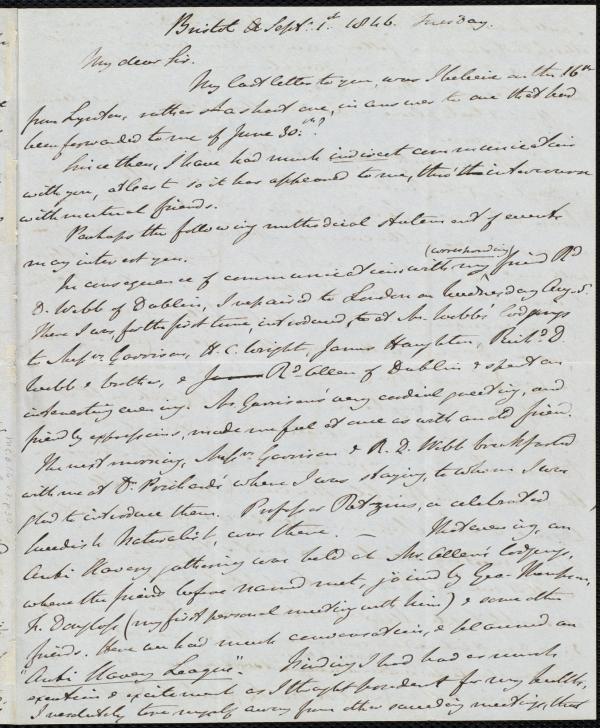 Bristol Sept. 1st 1846. Tuesday.
My dear Sir.
My last letter to you, was I believe on the 16th
from Lynton, rather a short one, in answer to one that had
been forwarded to me of June 30th.
Since then, I have had much indirect communication
with you, at least so it has appeared to me, thro' intercourse
with mutual friends.
Perhaps the following methodical statement of events
may interest you.
(corresponding)
In consequence of communications with my friend Rd
D. Webb of Dublin, I repaired to London on Wednesday Aug. 5
There I was, for the first time, introduced, at Mr Webbs' lodgings
to Messrs Garrison, H. C. Wright, James Haughton, Richd D.
Webb & brother, & Rd Allen of Dublin & spent an
interesting evening. Mr Garrison's very cordial greeting, and
friendly expressions, made me feel at once as with an old friend.
The next morning, Messrs Garrison & R. D. Webb breakfasted
with me at Dr Prichards' where I was staying, to whom I was
glad to introduce them. Professor Retzius, a celebrated
Swedish Naturalist, was there. — That evening, an
Anti Slavery gathering was held at Mr Allen's lodgings,
where the friends before named met, joined by Geo. Thompson,
F. Douglass, (my first personal meeting with him) & some other
friends. Here we had much conversation, & planned an
"Anti Slavery League". Finding I had had as much,
exertion & excitement as I thought prudent for my health,
I resolutely tore myself away from other succeeding meetings, that